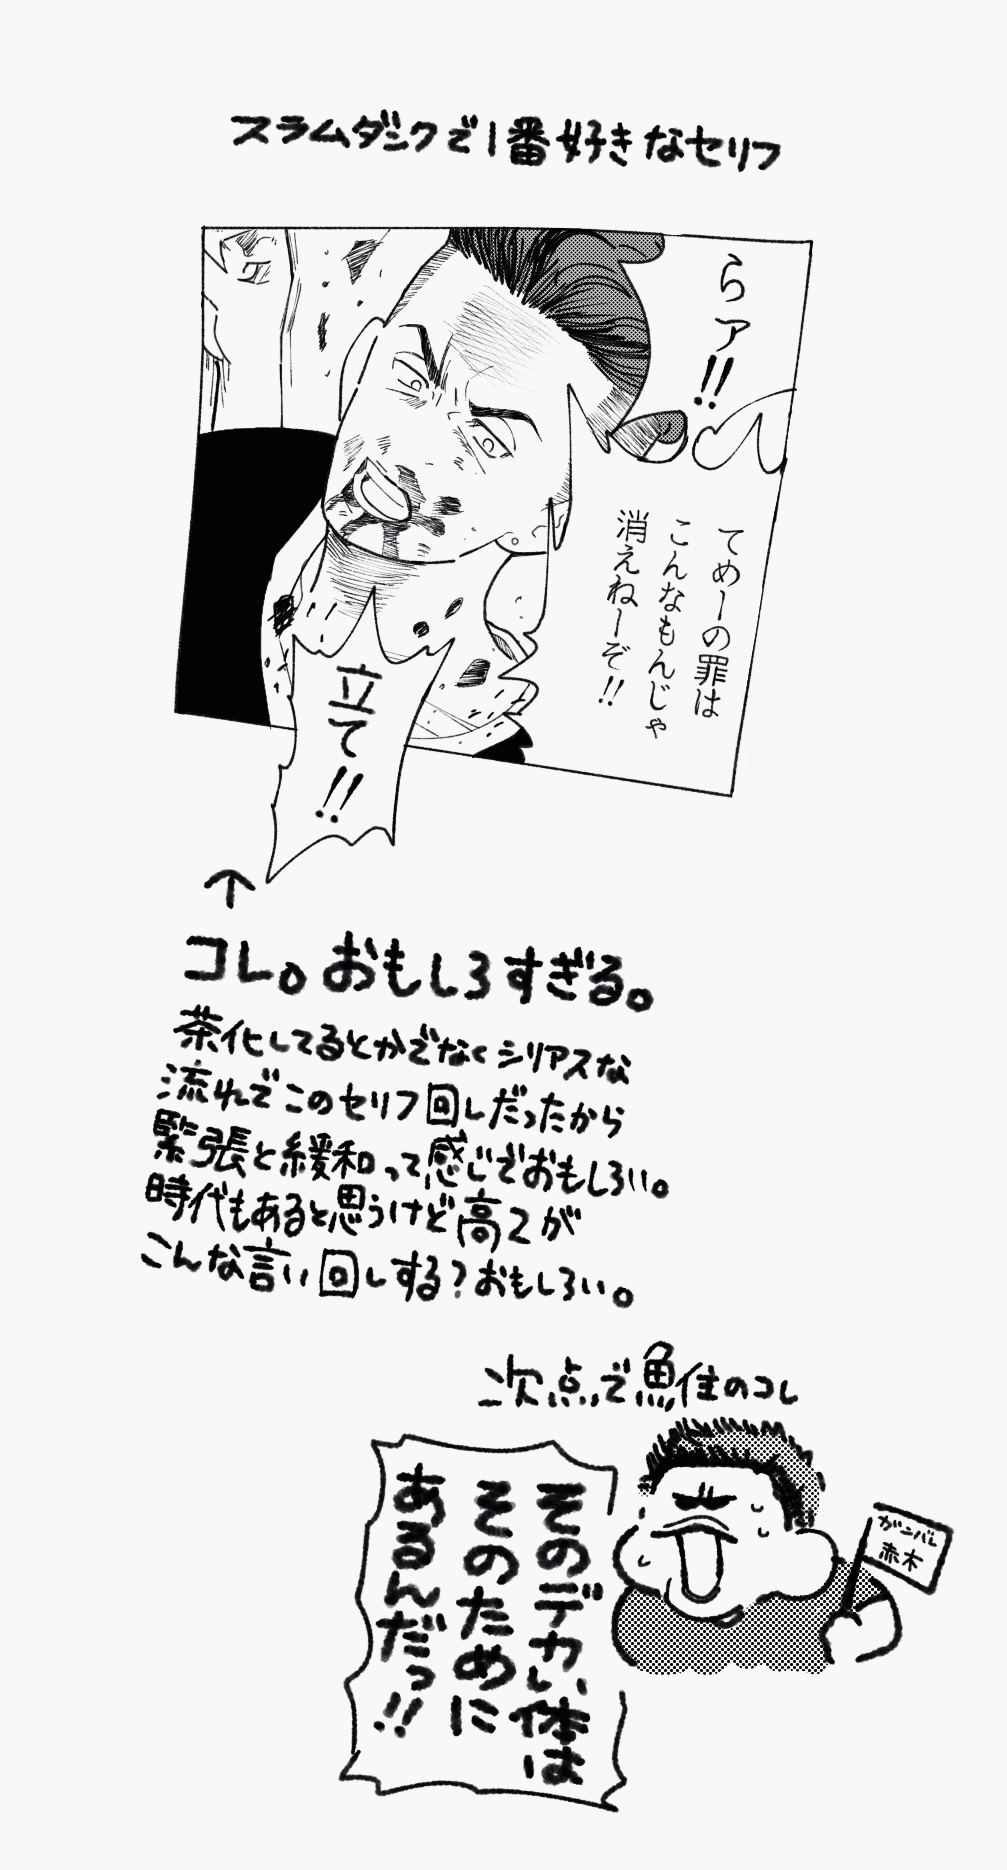 スラムダンクで1番好きなセリフ
らァ!!
てめーの罪は
こんなもんじゃ
消えねーぞ!!
立て!!
↑
コレ。おもしろすぎる。
茶化してるとかでなくシリアスな
流れでこのセリフ回しだったから
緊張と緩和って感じでおもしろい。
時代もあると思うけど高2が
こんな言い回しする?おもしろい。
次点で魚住のコレ
そのデカい体は
そのために
あるんだっ!!
ガンバレ
赤木